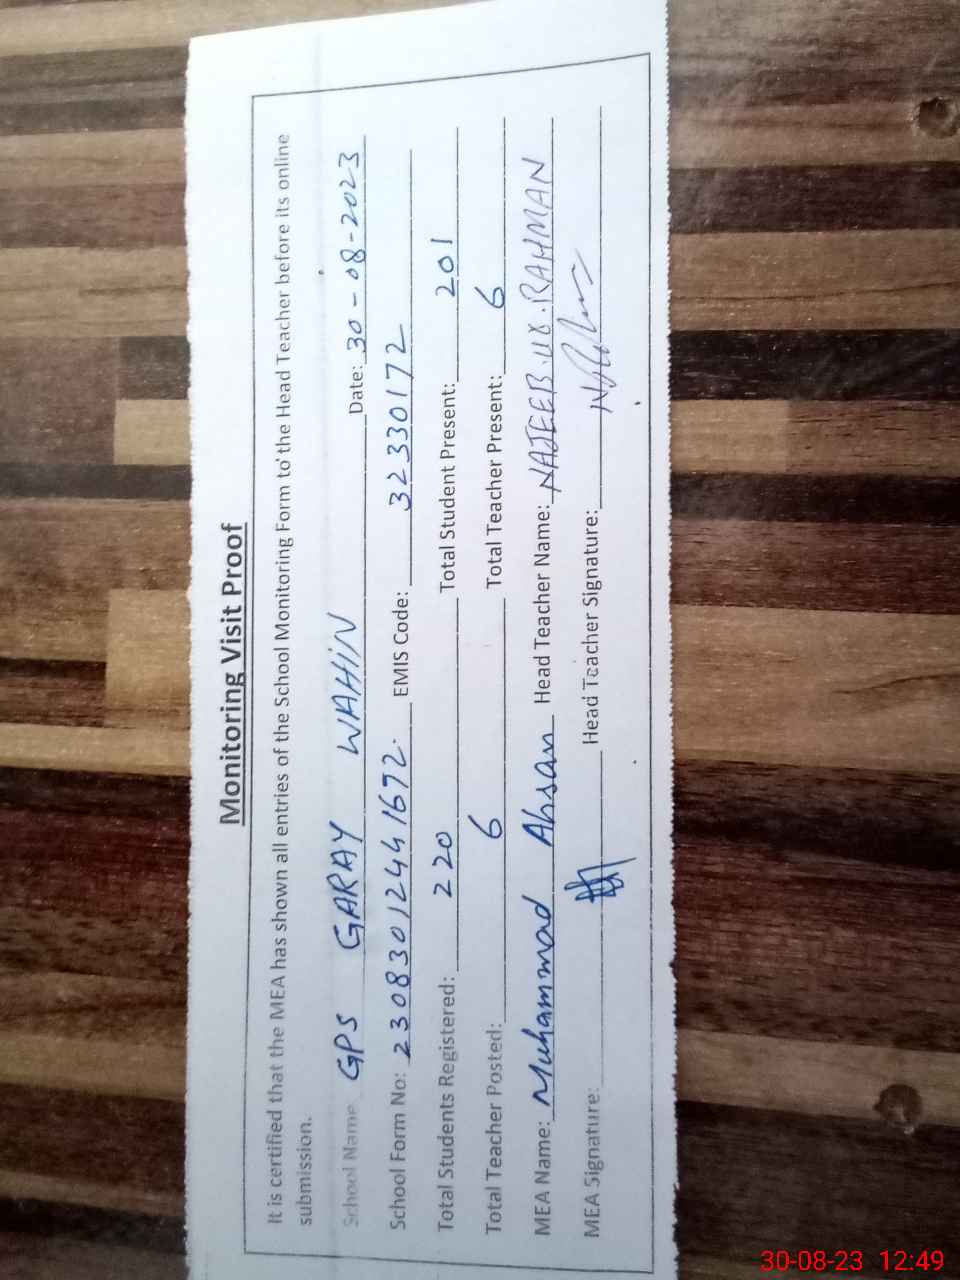 Monitoring Visit Proof
It is certified that the MEA has shown all entries of the School Monitoring Form to the Head Teacher before its online
submission.
School Name GPS GARAY WAHIN Date: 30-08-2023
School Form No: 230830124441672. EMIS Code: 32330172
Total Students Registered: 220 Total Student Present: 201
Total Teacher Posted: 6 Total Teacher Present: 6
MEA Name: Muhammad Ahsan Head Teacher Name: NAJEEB.UR.RAHMAN
MEA Signature: Head Teacher Signature:
30-08-23 12:49